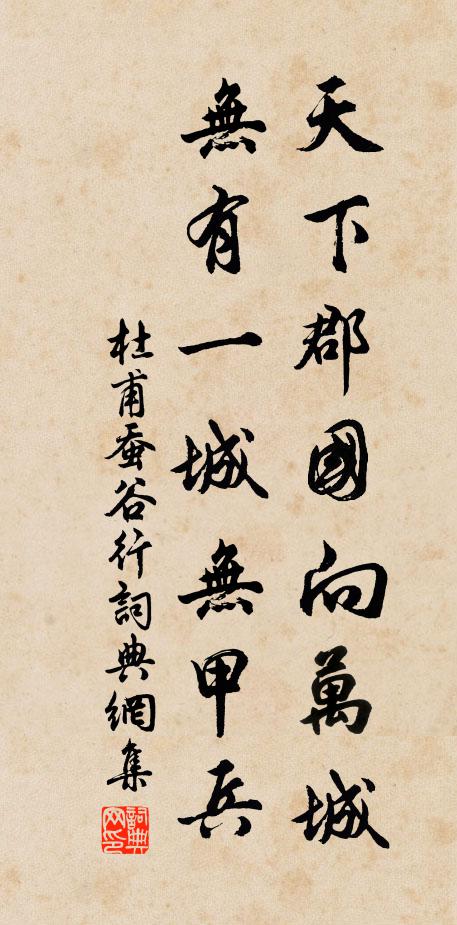 天下郡國向萬城
無有一城無甲兵
杜甫蚕谷行詞典網集
詞典網印